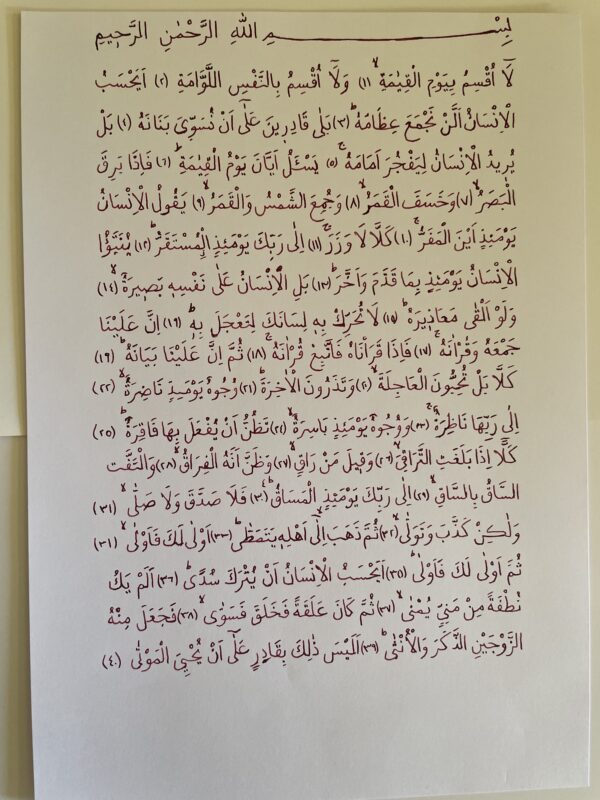 بِسْــــــمِ اللهِ الرَّحْمٰنِ الرَّحِيمِ
لَٓا اُقْسِمُ بِيَوْمِ الْقِيٰمَةِۙ ﴿١﴾ وَلَٓا اُقْسِمُ بِالنَّفْسِ اللَّوَّامَةِ ﴿٢﴾ اَيَحْسَبُ
الْاِنْسَانُ اَلَّنْ نَجْمَعَ عِظَامَهُۜ ﴿٣﴾ بَلٰى قَادِرِينَ عَلٰٓى اَنْ نُسَوِّيَ بَنَانَهُ ﴿٤﴾ بَلْ
يُرِيدُ الْاِنْسَانُ لِيَفْجُرَ اَمَامَهُۚ ﴿٥﴾ يَسْـَٔلُ اَيَّانَ يَوْمُ الْقِيٰمَةِۜ ﴿٦﴾ فَاِذَا بَرِقَ
الْبَصَرُۙ ﴿٧﴾ وَخَسَفَ الْقَمَرُۙ ﴿٨﴾ وَجُمِعَ الشَّمْسُ وَالْقَمَرُۙ ﴿٩﴾ يَقُولُ الْاِنْسَانُ
يَوْمَئِذٍ اَيْنَ الْمَفَرُّۚ ﴿١٠﴾ كَلَّا لَا وَزَرَۜ ﴿١١﴾ اِلٰى رَبِّكَ يَوْمَئِذٍ الْمُسْتَقَرُّۜ ﴿١٢﴾ يُنَبَّؤُا
الْاِنْسَانُ يَوْمَئِذٍ بِمَا قَدَّمَ وَاَخَّرَۜ ﴿١٣﴾ بَلِ الْاِنْسَانُ عَلٰى نَفْسِهِ بَصِيرَةٌۙ ﴿١٤﴾
وَلَوْ اَلْقٰى مَعَاذِيرَهُۜ ﴿١٥﴾ لَا تُحَرِّكْ بِهِ لِسَانَكَ لِتَعْجَلَ بِهِۜ ﴿١٦﴾ اِنَّ عَلَيْنَا
جَمْعَهُ وَقُرْاٰنَهُۚ ﴿١٧﴾ فَاِذَا قَرَاْنَاهُ فَاتَّبِعْ قُرْاٰنَهُۚ ﴿١٨﴾ ثُمَّ اِنَّ عَلَيْنَا بَيَانَهُۜ ﴿١٩﴾
كَلَّا بَلْ تُحِبُّونَ الْعَاجِلَةَۙ ﴿٢٠﴾ وَتَذَرُونَ الْاٰخِرَةَۜ ﴿٢١﴾ وُجُوهٌ يَوْمَئِذٍ نَاضِرَةٌۙ ﴿٢٢﴾
اِلٰى رَبِّهَا نَاظِرَةٌۚ ﴿٢٣﴾ وَوُجُوهٌ يَوْمَئِذٍ بَاسِرَةٌۙ ﴿٢٤﴾ تَظُنُّ اَنْ يُفْعَلَ بِهَا فَاقِرَةٌۜ ﴿٢٥﴾
كَلَّٓا اِذَا بَلَغَتِ التَّرَاقِيَۙ ﴿٢٦﴾ وَقِيلَ مَنْ رَاقٍۙ ﴿٢٧﴾ وَظَنَّ اَنَّهُ الْفِرَاقُۙ ﴿٢٨﴾ وَالْتَفَّتِ
السَّاقُ بِالسَّاقِۙ ﴿٢٩﴾ اِلٰى رَبِّكَ يَوْمَئِذٍ الْمَسَاقُۜ ﴿٣٠﴾ فَلَا صَدَّقَ وَلَا صَلّٰىۙ ﴿٣١﴾
وَلٰكِنْ كَذَّبَ وَتَوَلّٰىۙ ﴿٣٢﴾ ثُمَّ ذَهَبَ اِلٰٓى اَهْلِهِ يَتَمَطّٰىۜ ﴿٣٣﴾ اَوْلٰى لَكَ فَاَوْلٰىۙ ﴿٣١﴾
ثُمَّ اَوْلٰى لَكَ فَاَوْلٰىۜ ﴿٣٥﴾ اَيَحْسَبُ الْاِنْسَانُ اَنْ يُتْرَكَ سُدًىۜ ﴿٣٦﴾ اَلَمْ يَكُ
نُطْفَةً مِنْ مَنِيٍّ يُمْنٰىۙ ﴿٣٧﴾ ثُمَّ كَانَ عَلَقَةً فَخَلَقَ فَسَوّٰىۙ ﴿٣٨﴾ فَجَعَلَ مِنْهُ
الزَّوْجَيْنِ الذَّكَرَ وَالْاُنْثٰىۜ ﴿٣٩﴾ اَلَيْسَ ذٰلِكَ بِقَادِرٍ عَلٰٓى اَنْ يُحْيِيَ الْمَوْتٰى ﴿٤٠﴾